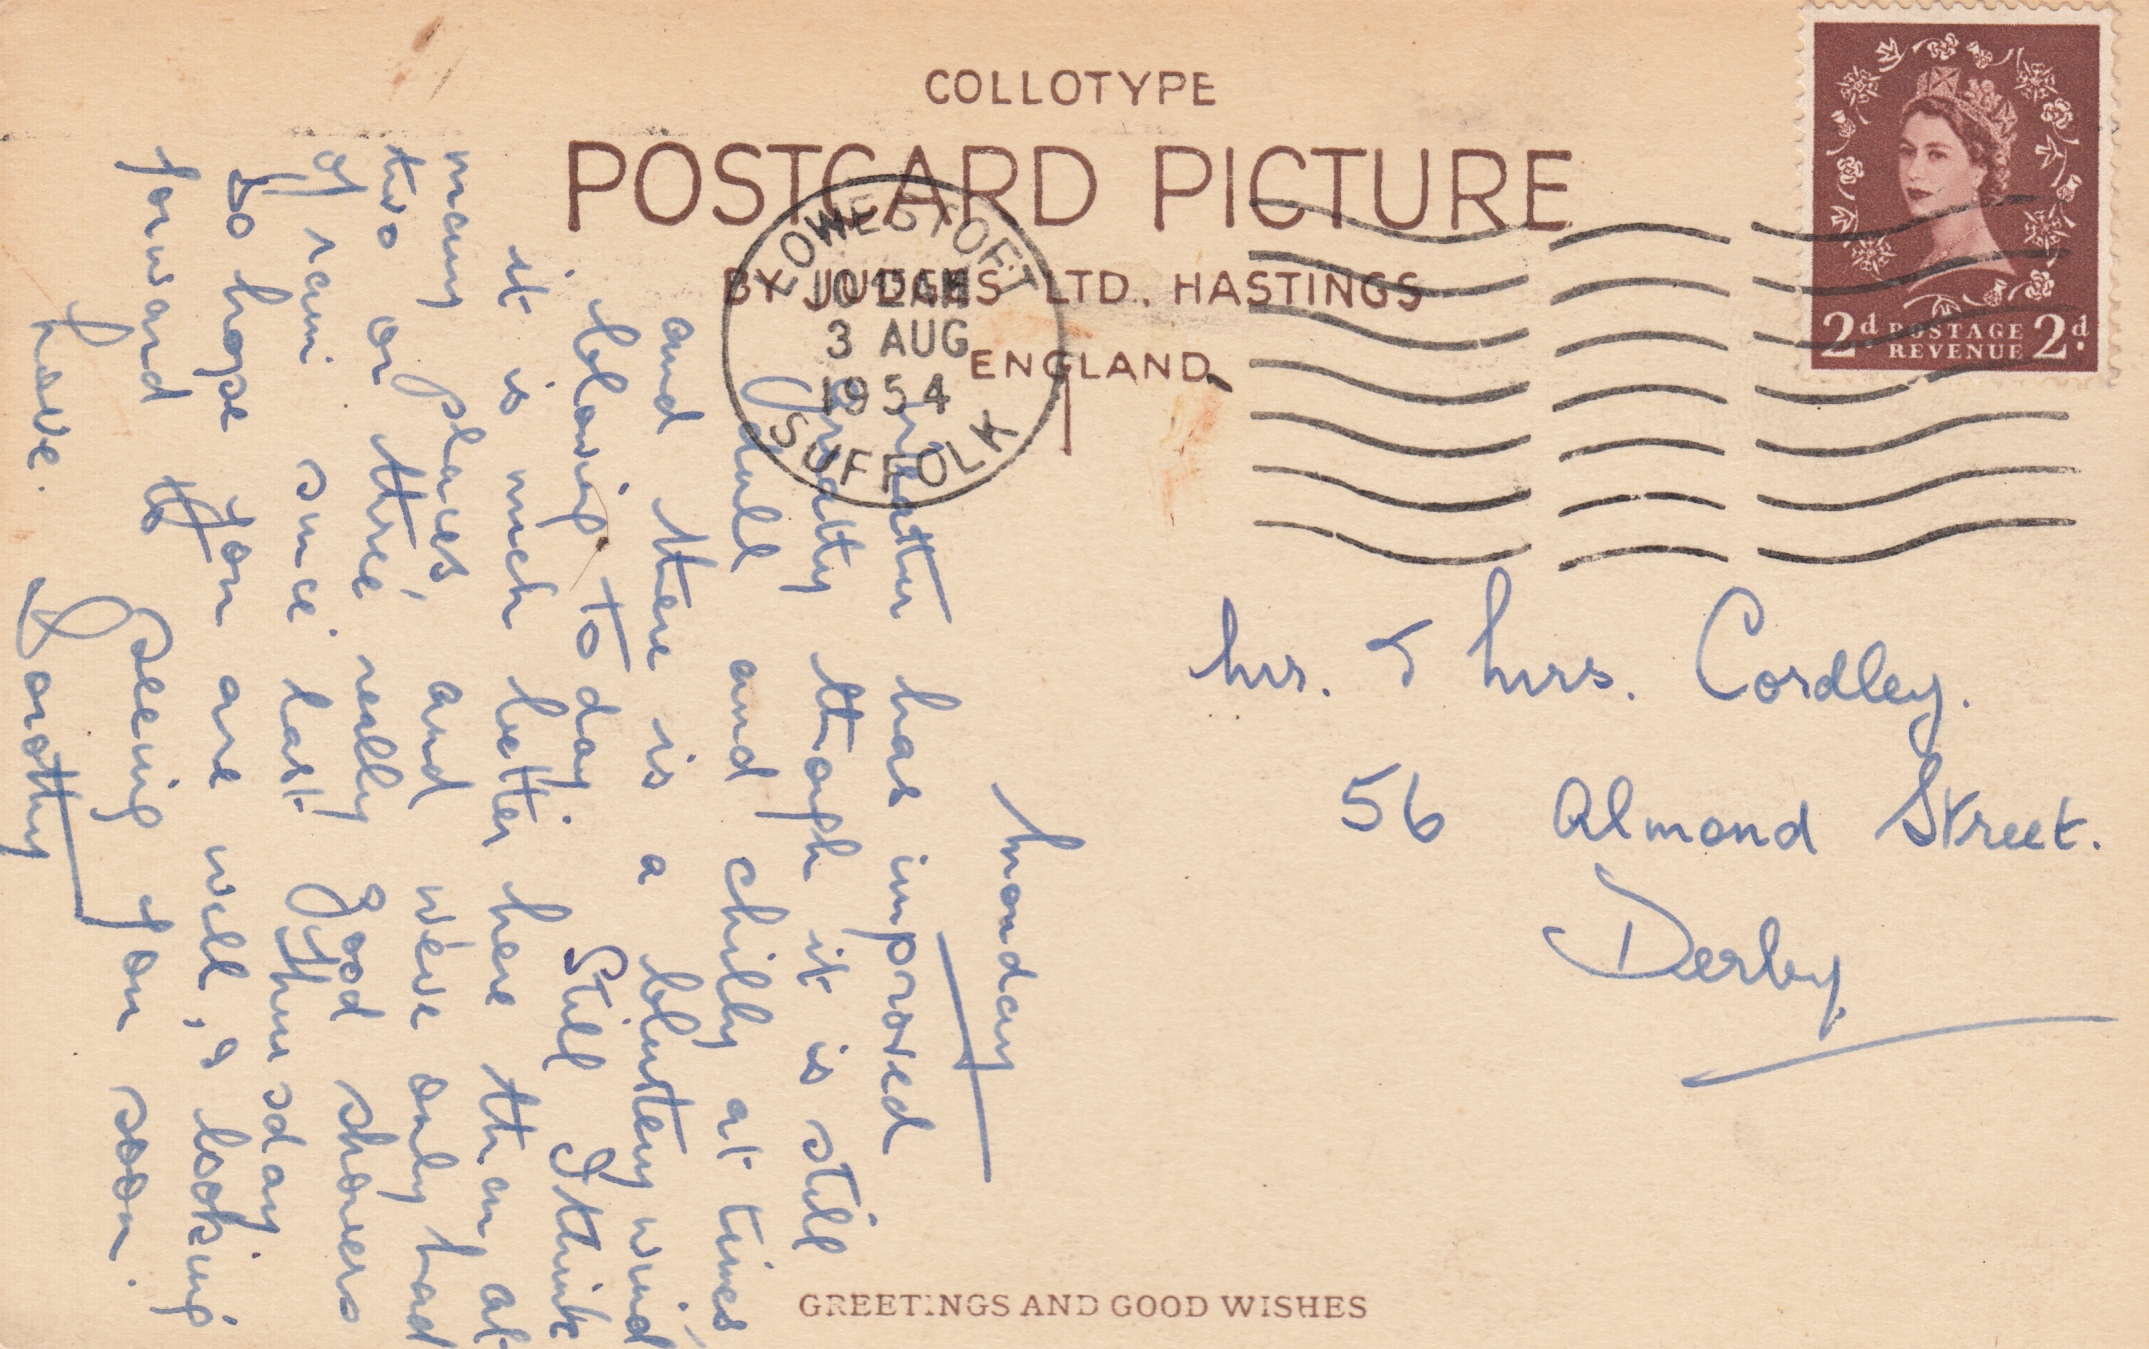 COLLOTYPE
POSTCARD PICTURE
BY JUDGES LTD., HASTINGS
ENGLAND
LOWESTOFT
10 15 AM
3 AUG
1954
SUFFOLK
2d POSTAGE REVENUE 2d
Monday
Weather has improved
greatly though it is still
dull and chilly at times
and there is a blustery wind
blowing to day. Still I think
it is much better here than at
many places, and we've only had
two or three really good showers
of rain since last Thursday.
So hope you are well, & looking
forward to Seeing you soon.
love. Dorothy
Mr. & Mrs. Cordley.
56 Almond Street.
Derby.
GREETINGS AND GOOD WISHES